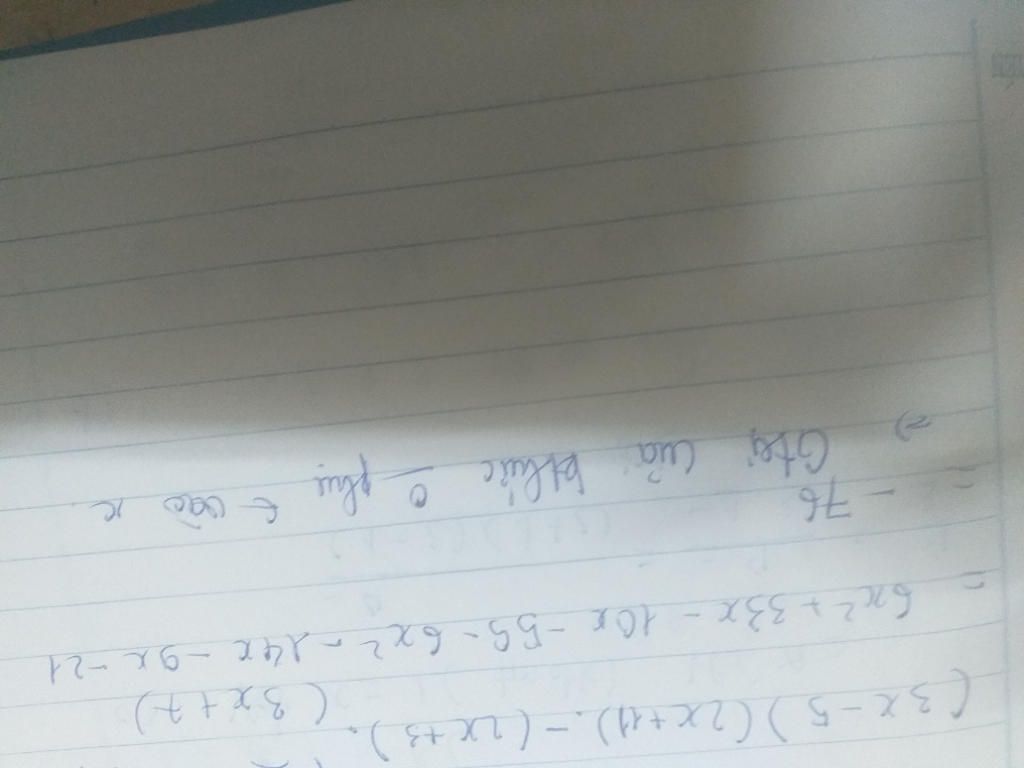 (3x-5)(2x+11).-(2x+3).
(3x+7)
= 6x²+33x-10x-55-6x²-14x-9x-21
= -76
=) Gtrị của bthức o phụ € vào x